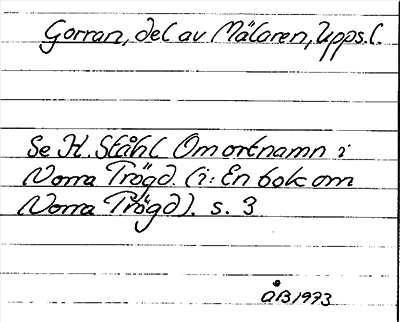 Gorran, del av Mälaren, Upps.l.
Se H. Ståhl Om ortnamn i
Norra Trögd. (i: En bok om
Norra Trögd). s. 3
ÅB 1973